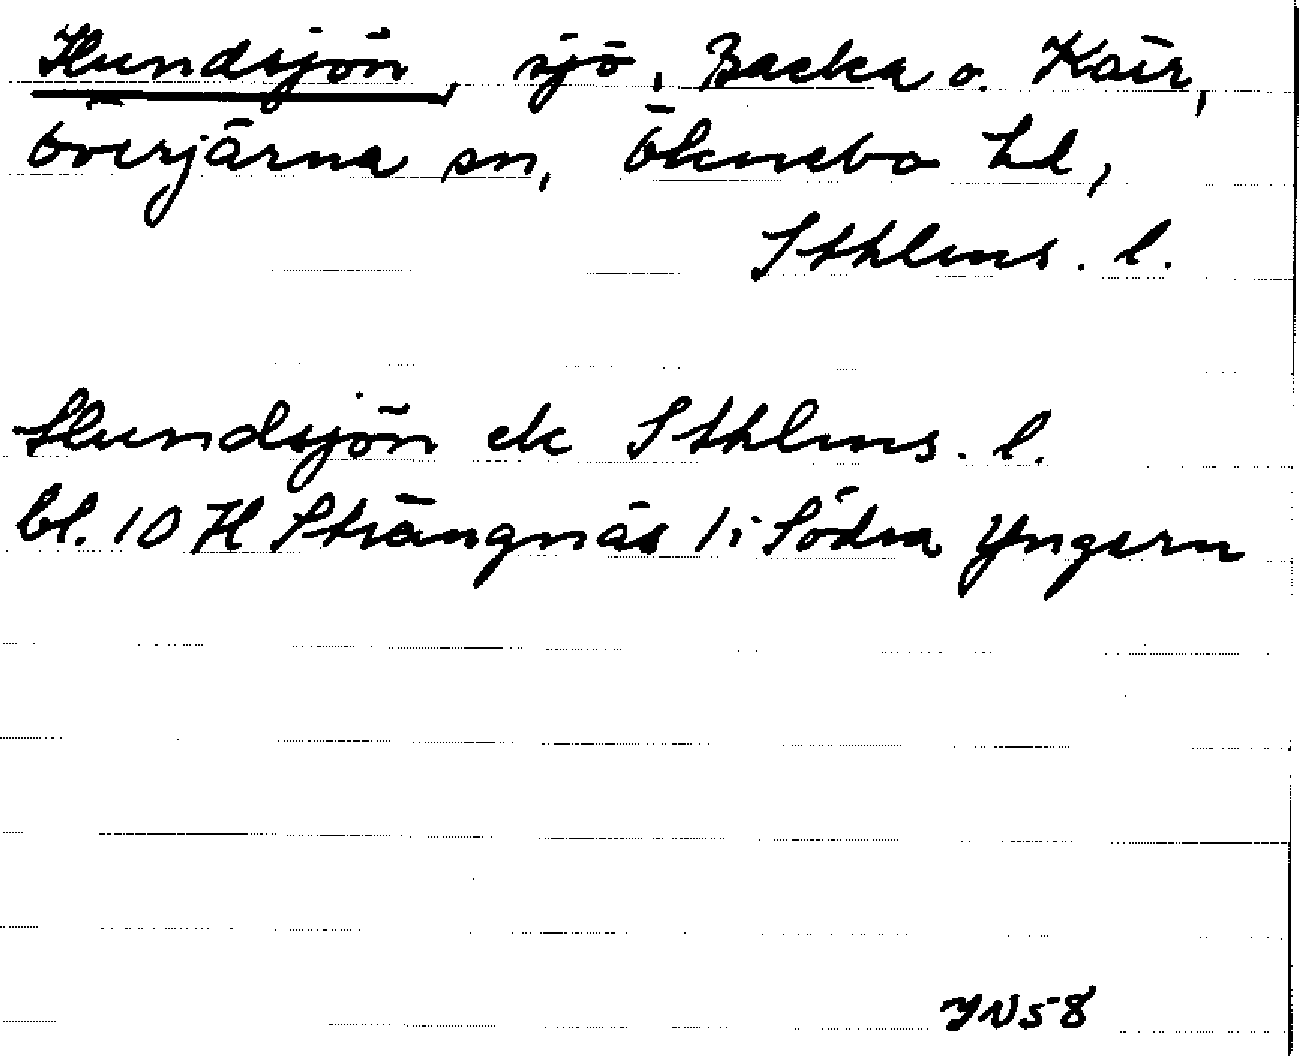 Hundsjön, sjö, Backa o. Kärr,
Överjärna sn, Öknebo hd,
Sthlms. l.
Hundsjön ek Sthlms. l.
bl. 10 H Strängnäs 1i Södra Yngern
YN58